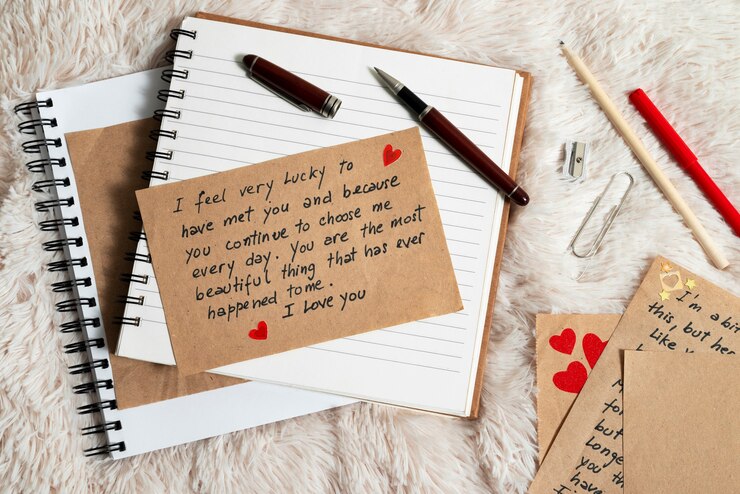 I feel very Lucky to
have met you and because
you continue to choose me
every day. You are the most
beautiful thing that has ever
happened to me.
I Love you
I'm a bit
this, but her
Like
for
but
Longe
you th
hav
I